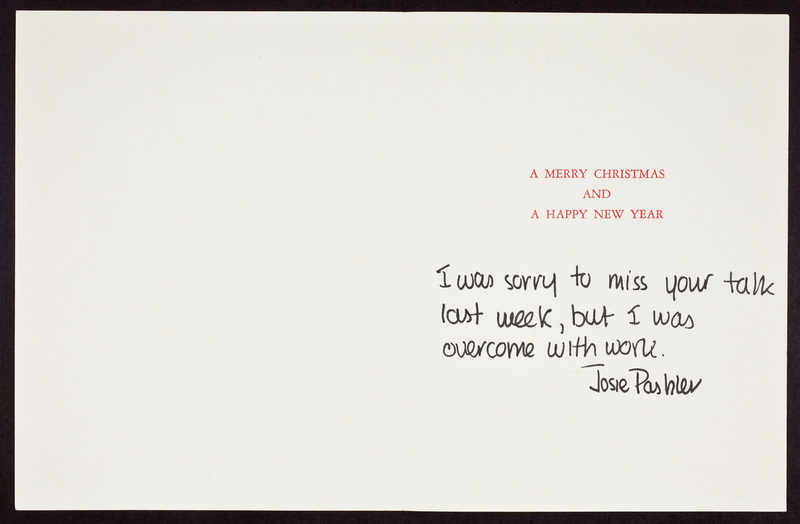 A MERRY CHRISTMAS
AND
A HAPPY NEW YEAR
I was sorry to miss your talk
last week, but I was
overcome with work.
Josie Pashley